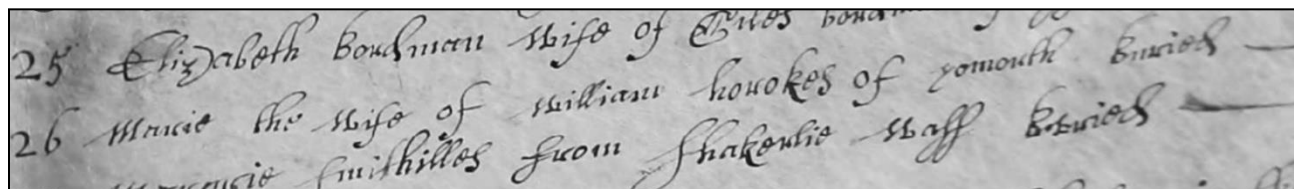 25 Elizabeth bordman wife of Giles
26 Marie the wife of william horokes of yomouth buried
smithilles from shakerlie was buried